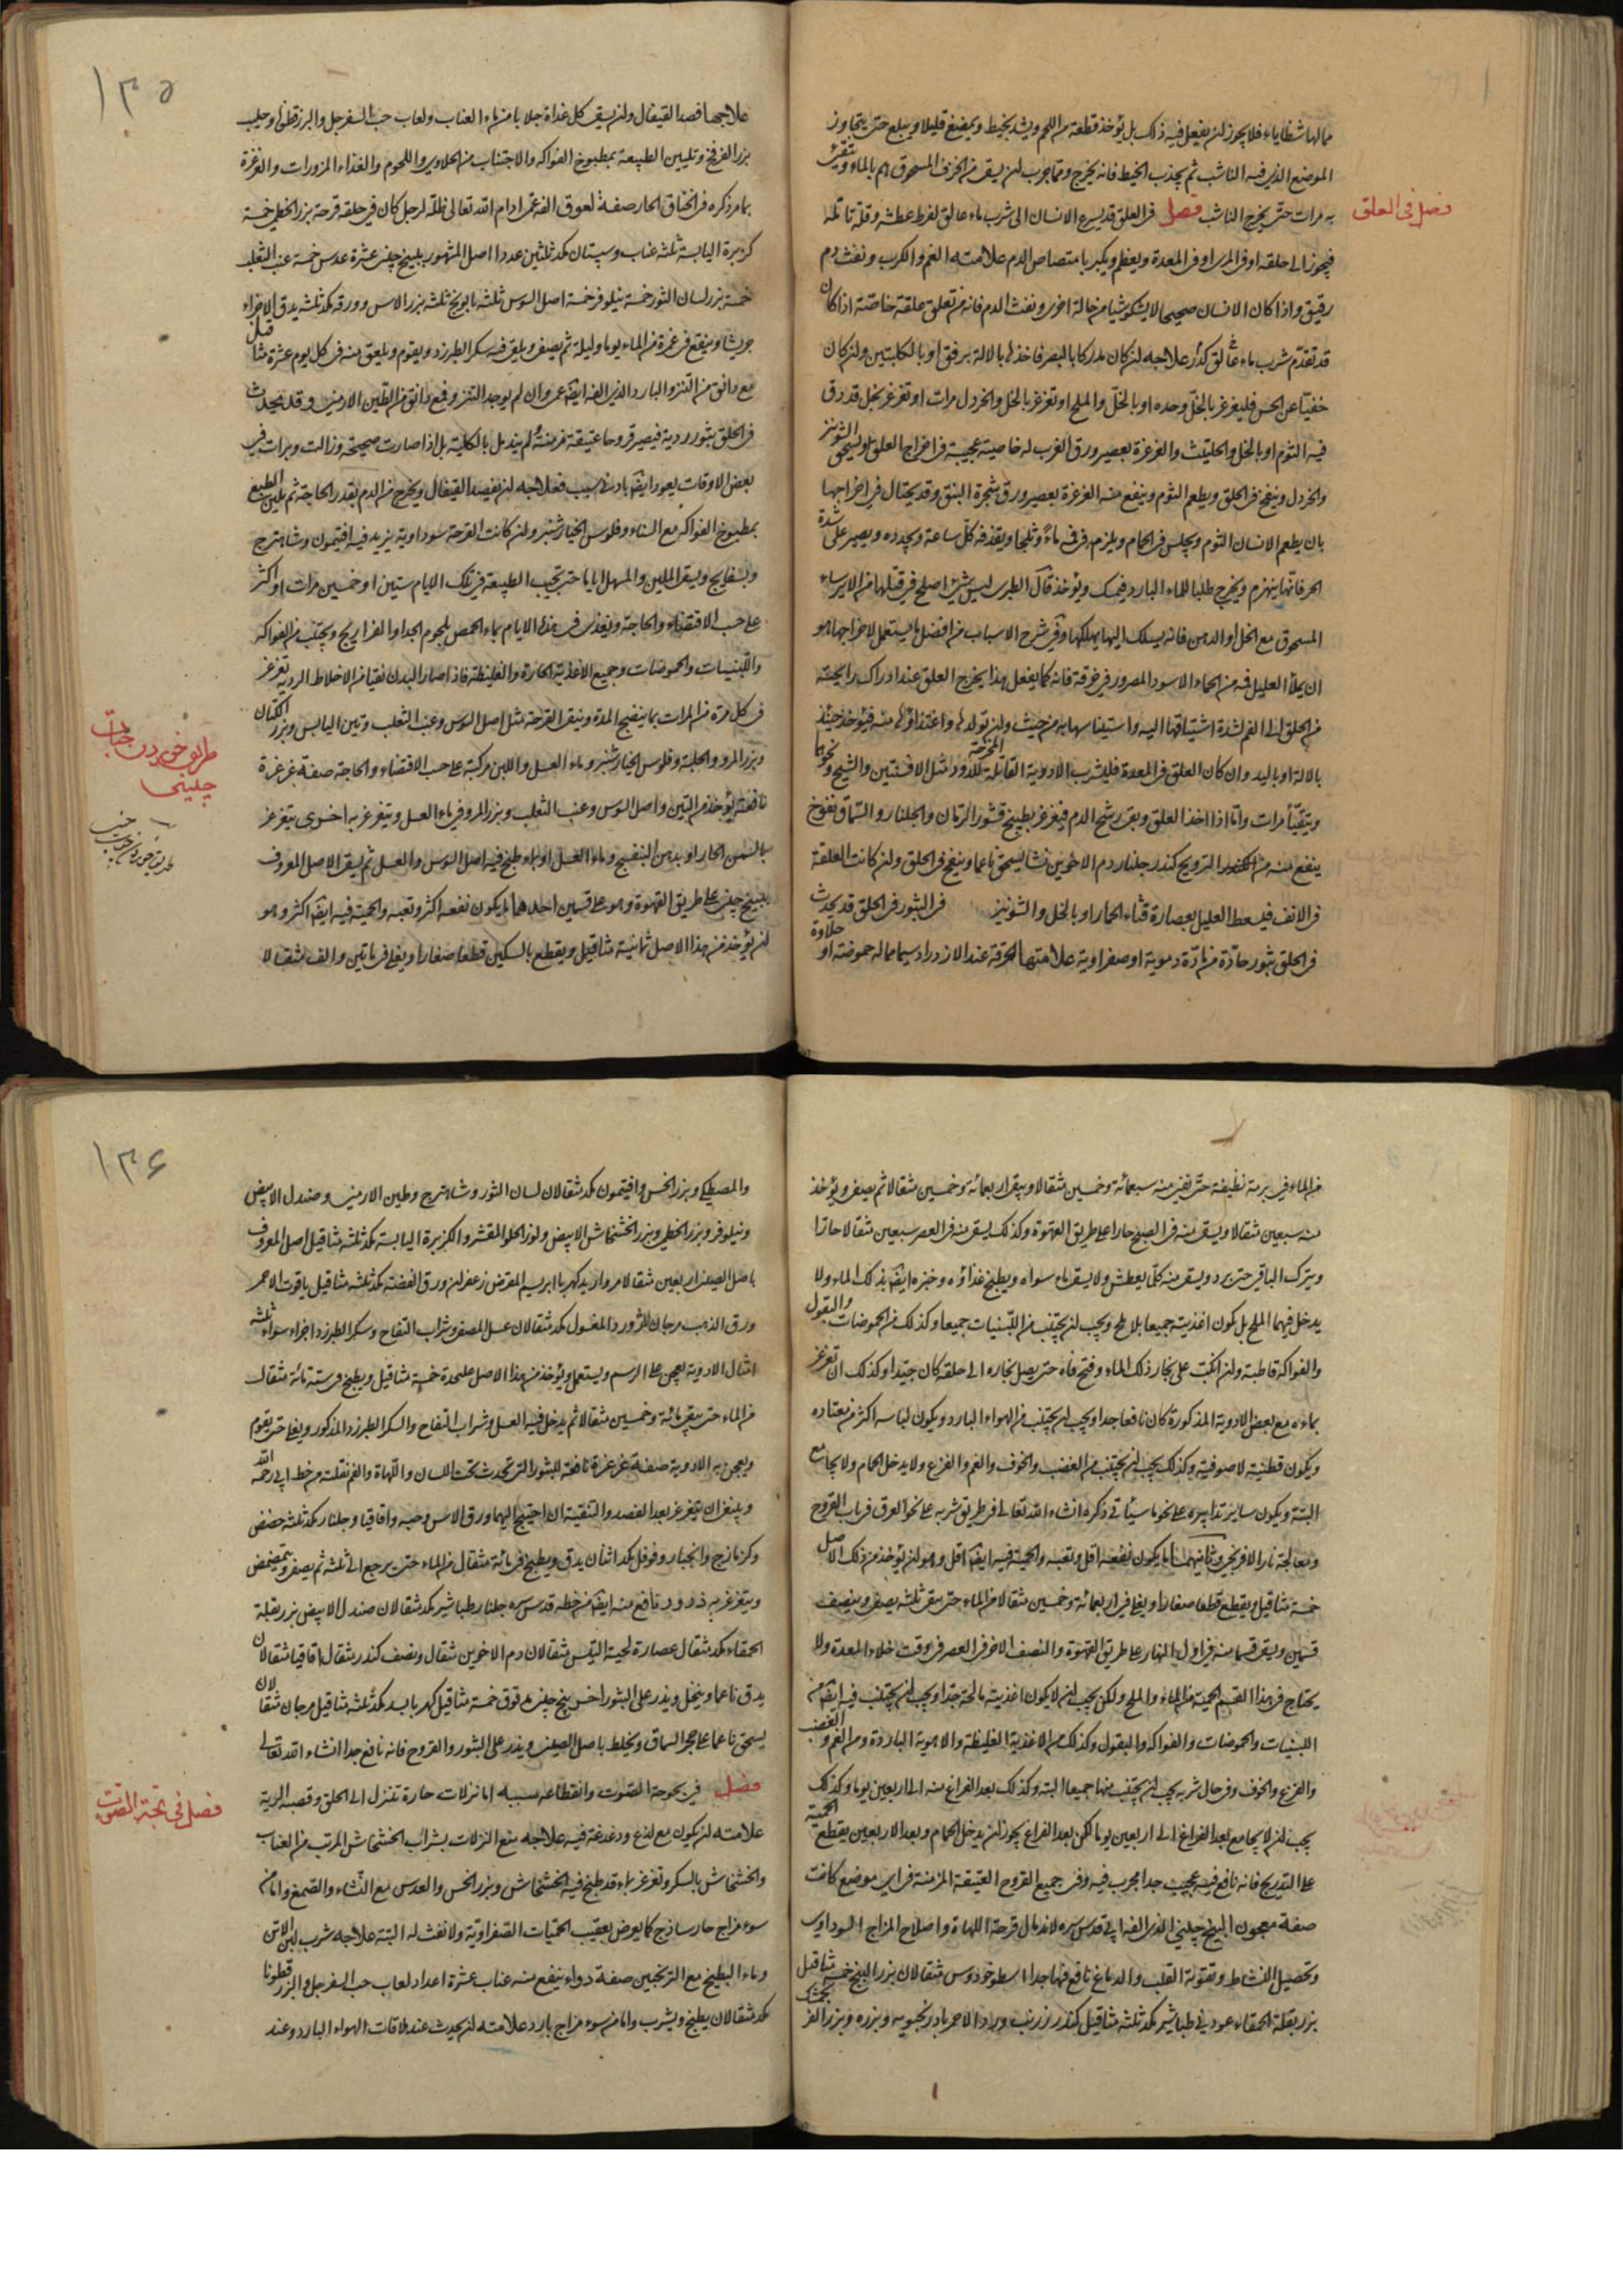 مما لها شظايا فلا يجوز ان يفعل فيه ذلك بل يؤخذ قطعة من اللحم ويشد بخيط ويمضغ قليلا ويبلع حتى يتجاوز
الموضع الذي فيه الناشب ثم يجذب الخيط فانه يخرج ومما جرب ان يسقى من الحرف المسحوق بالماء ويتقيأ
به مرات حتى يخرج الناشب فصل في العلق قد يسرع الانسان الى شرب ماء عالق لفرط عطشه وقلة تأمله
فصل في العلق
فيجوز الى حلقه او في المرى او في المعدة ويعظم ويكبر بامتصاص الدم علامته الغم والكرب ونفث دم
رقيق واذا كان الانسان صحيحا لا يشكو شيئا من حالة اخرى ونفث الدم فانه من تعلق علقة خاصة اذا كان
قد تقدم شرب ماء عالق كدر علاجه ان كان مدركا بالبصر فاخذها بالالة برفق او بالكلبتين وان كان
خفيا عن الحس فليغرغر بالخل وحده او بالخل والملح او تغرغر بالخل والخردل مرات او تغرغر بخل قد دق
فيه الثوم او بالخل والحلتيث والغرغرة بعصير ورق الغرب له خاصية عجيبة في اخراج العلق او يسحق الشونيز
والخردل وينفخ في الحلق ويطعم الثوم وينفع منه الغرغرة بعصير ورق شجرة البنق وقد يحتال في اخراجها
بان يطعم الانسان الثوم ويجلس في الحمام ويلزم في فيه ماء وثلجا ويقذفه كل ساعة ويجدده ويصبر على شدة
الحر فانها ينهزم ويخرج طلبا للماء البارد فيمسك ويؤخذ قال الطبري ليس شئ اصلح في قتلها من الايرساء
المسحوق مع الخل او الدهن فانه يسلك اليها يهلكها وفي شرح الاسباب من افضل ما يستعمل لاخراجها هو
ان يملأ العليل فمه من الحماء الاسود المصرور في خرقة فانه كما يفعل هذا يخرج العلق عند ادراك رايحته
من الحلق الى الفم لشدة اشتياقها اليه واستيناسها به من حيث وان تولدها واغتذاؤها منه فيؤخذ حينئذ
بالالة او باليد وان كان العلق في المعدة فليشرب الادوية القاتلة المخرجة للدود مثل الافسنتين والشيح ونحوها
ويتقيأ مرات واما اذا اخذ العلق وبقى رشح الدم فيغرغر بطبيخ قشور الرمان والجلنار والسماق نفوخ
ينفع منه من الترويح كندر جلنار دم الاخوين نشا يسحق ناعما وينفخ في الحلق وان كانت العلقة
في الانف فليسعط العليل بعصارة قثاء الحمار او بالخل والشونيز في البثور في الحلق قد يحدث
في الحلق بثور حادة من مادة دموية او صفراوية علامتها الحرقة عند الازدراد سيما ما له حموضة او حلاوة
۱۳۵
علاجها فصد القيفال وان يسقى كل غداة جلابا من ماء العناب ولعاب حب السفرجل والبزرقطونا وحليب
بزر الفرفخ وتليين الطبيعة بمطبوخ الفواكه والاجتناب من الحلاوي واللحوم والغذاء المزورات والغرغرة
بما مر ذكره في الخناق الحار صفة لعوق الفه عمي ادام الله تعالى ظله لرجل كان في حلقه قرحة بزر الخطمي خمسة
كزبرة اليابسة ثلثة عناب وسپستان مكد ثلثين عددا اصل المشهور ببيخ چيني عشرة عدس خمسة عنب الثعلب
خمسة بزر لسان الثور خمسة نيلوفر خمسة اصل السوس ثلثة بابونج ثلثة بزر الاس وورقه مكد ثلثة يدق الاجزاء
جريشا وينقع في غمرة من الماء يوما وليلة ثم يصفى ويلقى فيه سكر الطبرزد ويقوم ويلعق منه في كل يوم عشرة مثاقيل
مع دانق من التنزو البارد الذي الفه ايضا عمي وان لم يوجد التنزو فمع دانق من الطين الارمني وقد يحدث
في الحلق بثور ردية فيصير قروحا عتيقة مزمنة لم يندمل بالكلية بل اذا صارت صحيحة وزالت وبرات في
بعض الاوقات يعود ايضا بادنى سبب فعلاجه ان يفصد القيفال ويخرج من الدم بقدر الحاجة ثم يلين الطبع
بمطبوخ الفواكه مع السناء وفلوس الخيارشنبر وان كانت القرحة سوداوية يزيد فيه افتيمون وشاهترج
وبسفايج ويسقى الملين والمسهل اياما حتى تجيب الطبيعة في تلك الايام ستين او خمسين مرات او اكثر
على حسب الاقتضاء والحاجة ويغذى في هذه الايام بماء الحمص بلحوم الجدا والفراريج ويجتنب من الفواكه
واللبنيات والحموضات وجميع الاغذية الحارة والغليظة فاذا صار البدن نقيا من الاخلاط الردية تغرغر
في كل مرة من المرات بما ينضج المدة وينقى القرحة مثل اصل السوس وعنب الثعلب وتين اليابس وبزر الكتان
وبزر المرو والحلبة وفلوس الخيارشنبر وماء العسل واللبن مركبة على حسب الاقتضاء والحاجة صفة غرغرة
طريق خوردن چاى چينى
نافعة يؤخذ من التين واصل السوس وعنب الثعلب وبزر المرو في ماء العسل ويتغرغر به اخرى يتغرغر
بالسمن الحار او بدهن البنفسج وماء العسل او ماء طبخ فيه اصل السوس والعسل ثم يسقى الاصل المعروف
ببيخ چيني على طريق القهوة وهو على قسمين احدهما ما يكون نفعه اكثر وتعبه والحمية فيه ايضا اكثر وهو
ان يؤخذ من هذا الاصل ثمانية مثاقيل ويقطع بالسكين قطعا صغارا ويغلى في مائتين والف مثقالا
من الماء في برمة نظيفة حتى يفنى منه سبعمائة وخمسين مثقالا ويبقى اربعمائة وخمسين مثقالا ثم يصفى ويؤخذ
منه سبعين مثقالا ويسقى منه في الصبح حارا على طريق القهوة وكذلك يسقى منه في العصر سبعين مثقالا حارا
ويترك الباقي حتى يبرد ويسقى منه كلما يعطش ولا يسقى ماء سواه ويطبخ غذاؤه وخبزه ايضا بذلك الماء ولا
يدخل فيهما الملح بل يكون اغذيته جميعا بلا ملح ويجب ان يجتنب من اللبنيات جميعا وكذلك من الحموضات والبقول
والفواكه قاطبة وان انكب على بخار ذلك الماء وفتح فاه حتى يصل بخاره الى حلقه كان جيدا وكذلك ان تغرغر
بماءه مع بعض الادوية المذكورة كان نافعا جدا ويجب ان يجتنب من الهواء البارد ويكون لباسه اكثر من معتاده
ويكون قطنية لا صوفية وكذلك يجب ان يجتنب من الغضب والخوف والغم والفزع ولا يدخل الحمام ولا يجامع
البتة ويكون ساير تدابيره على نحو ما سيأتي ذكره انشاء الله تعالى في طريق شربه على نحو العرق في باب القروح
ومعالجة نار الافرنجي وثانيهما ما يكون نفعه اقل وتعبه والحمية فيه ايضا اقل وهو ان يؤخذ من ذلك الاصل
خمسة مثاقيل ويقطع قطعا صغارا ويغلى في اربعمائة وخمسين مثقالا من الماء حتى يبقى ثلثه يصفى وينصف
قسمين ويسقى قسما منه في اول النهار على طريق القهوة والنصف الاخر في العصر في وقت خلاء المعدة ولا
يحتاج في هذا القسم الحمية من الماء والملح ولكن يجب ان لا يكون اغذيته مالحة جدا ويجب ان يجتنب فيه ايضا من
اللبنيات والحموضات والفواكه والبقول وكذلك من الاغذية الغليظة والاهوية الباردة ومن الغم والغضب
والفزع والخوف وفي حال شربه يجب ان يجتنب منها جميعا البتة وكذلك بعد الفراغ منه الى اربعين يوما وكذلك
يجب ان لا يجامع بعد الفراغ الى اربعين يوما لكن بعد الفراغ يجوز ان يدخل الحمام وبعد الاربعين يقطع الحمية
على التدريج فانه نافع فيه عجيب جدا مجرب فيه وفي جميع القروح العتيقة المزمنة في اي موضع كانت
صفة معجون البيخ چيني الذي الفه ابي قدس سره لاندمال قرحة اللهاة واصلاح المزاج السوداوي
وتحصيل النشاط وتقوية القلب والدماغ نافع فيها جدا اسطوخودوس مثقالان بزر البنج خمسة مثاقيل
بزر بقلة الحمقاء عود ني طباشير مكد ثلثة مثاقيل كندر زرنب ورد الاحمر بادرنجبويه وبزره وبزر الفرنجمشك
۱۳۶
والمصطكي وبزر الخس وافتيمون مكد مثقالان لسان الثور وشاهترج وطين الارمني وصندل الابيض
ونيلوفر وبزر الخطمي وبزر الخشخاش الابيض ولوز الحلو المقشر والكزبرة اليابسة مكد ثلثة مثاقيل اصل المعروف
باصل الصيني اربعين مثقالا مرواريد كهربا ابريسم المقرض زعفران ورق الفضة مكد ثلثة مثاقيل ياقوت الاحمر
ورق الذهب مرجان لاژورد المغسول مكد مثقالان عسل المصفى وشراب التفاح وسكر الطبرزد اجزاء سواء ثلثة
امثال الادوية يعجن على الرسم ويستعمل ويؤخذ من هذا الاصل عليحدة خمسة مثاقيل ويطبخ في ستة مائة مثقال
من الماء حتى يبقى مائة وخمسين مثقالا ثم يدخل فيه العسل وشراب التفاح والسكر الطبرزد المذكور ويغلى حتى يقوم
ويعجن به الادوية صفة غرغرة نافعة للبثور التي تحدث تحت اللسان واللهاة والفم نقلته من خط ابي رحمه الله
وينبغي ان يتغرغر بعد الفصد والتنقية ان احتيج اليهما ورق الاس وحبه واقاقيا وجلنار مكد ثلثة حضض
وكزمازج وانجبار وفوفل مكد اثنان يدق ويطبخ في مائة مثقال من الماء حتى يرجع الى ثلثه ثم يصفى ويتمضمض
ويتغرغر به ذرور نافع منه ايضا من خطه قدس سره جلنار طباشير مكد مثقالان صندل الابيض بزر بقلة
الحمقاء مكد مثقال عصارة لحية التيس مثقالان دم الاخوين مثقال ونصف كندر مثقال اقاقيا مثقالان
يدق ناعما وينخل ويذر على البثور اخرى بيخ چيني مدقوق خمسة مثاقيل كهربا بسد مكد ثلثة مثاقيل مرجان مثقالان
يسحق ناعما على حجر السماق ويخلط باصل الصيني ويذر على البثور والقروح فانه نافع جدا انشاء الله تعالى
فصل في بحوحة الصوت وانقطاعه سببه اما نزلات حارة تنزل الى الحلق وقصبة الرية
فصل في بحة الصوت
علامته ان يكون مع لذع ودغدغة فيه علاجه منع النزلات بشراب الخشخاش المرتب من العناب
والخشخاش بالسكر وتغرغر بماء قد طبخ فيه الخشخاش وبزر الخس والعدس مع النشاء والصمغ واما من
سوء مزاج حار ساذج كما يعرض بعقيب الحميات الصفراوية ولا نفث له البتة علاجه شرب لبن الاتن
وماء البطيخ مع الترنجبين صفة دواء ينفع منه عناب عشرة اعداد لعاب حب السفرجل والبزرقطونا
مكد مثقالان يطبخ ويشرب واما من سوء مزاج بارد علامته ان يحدث عند ملاقات الهواء البارد وعند